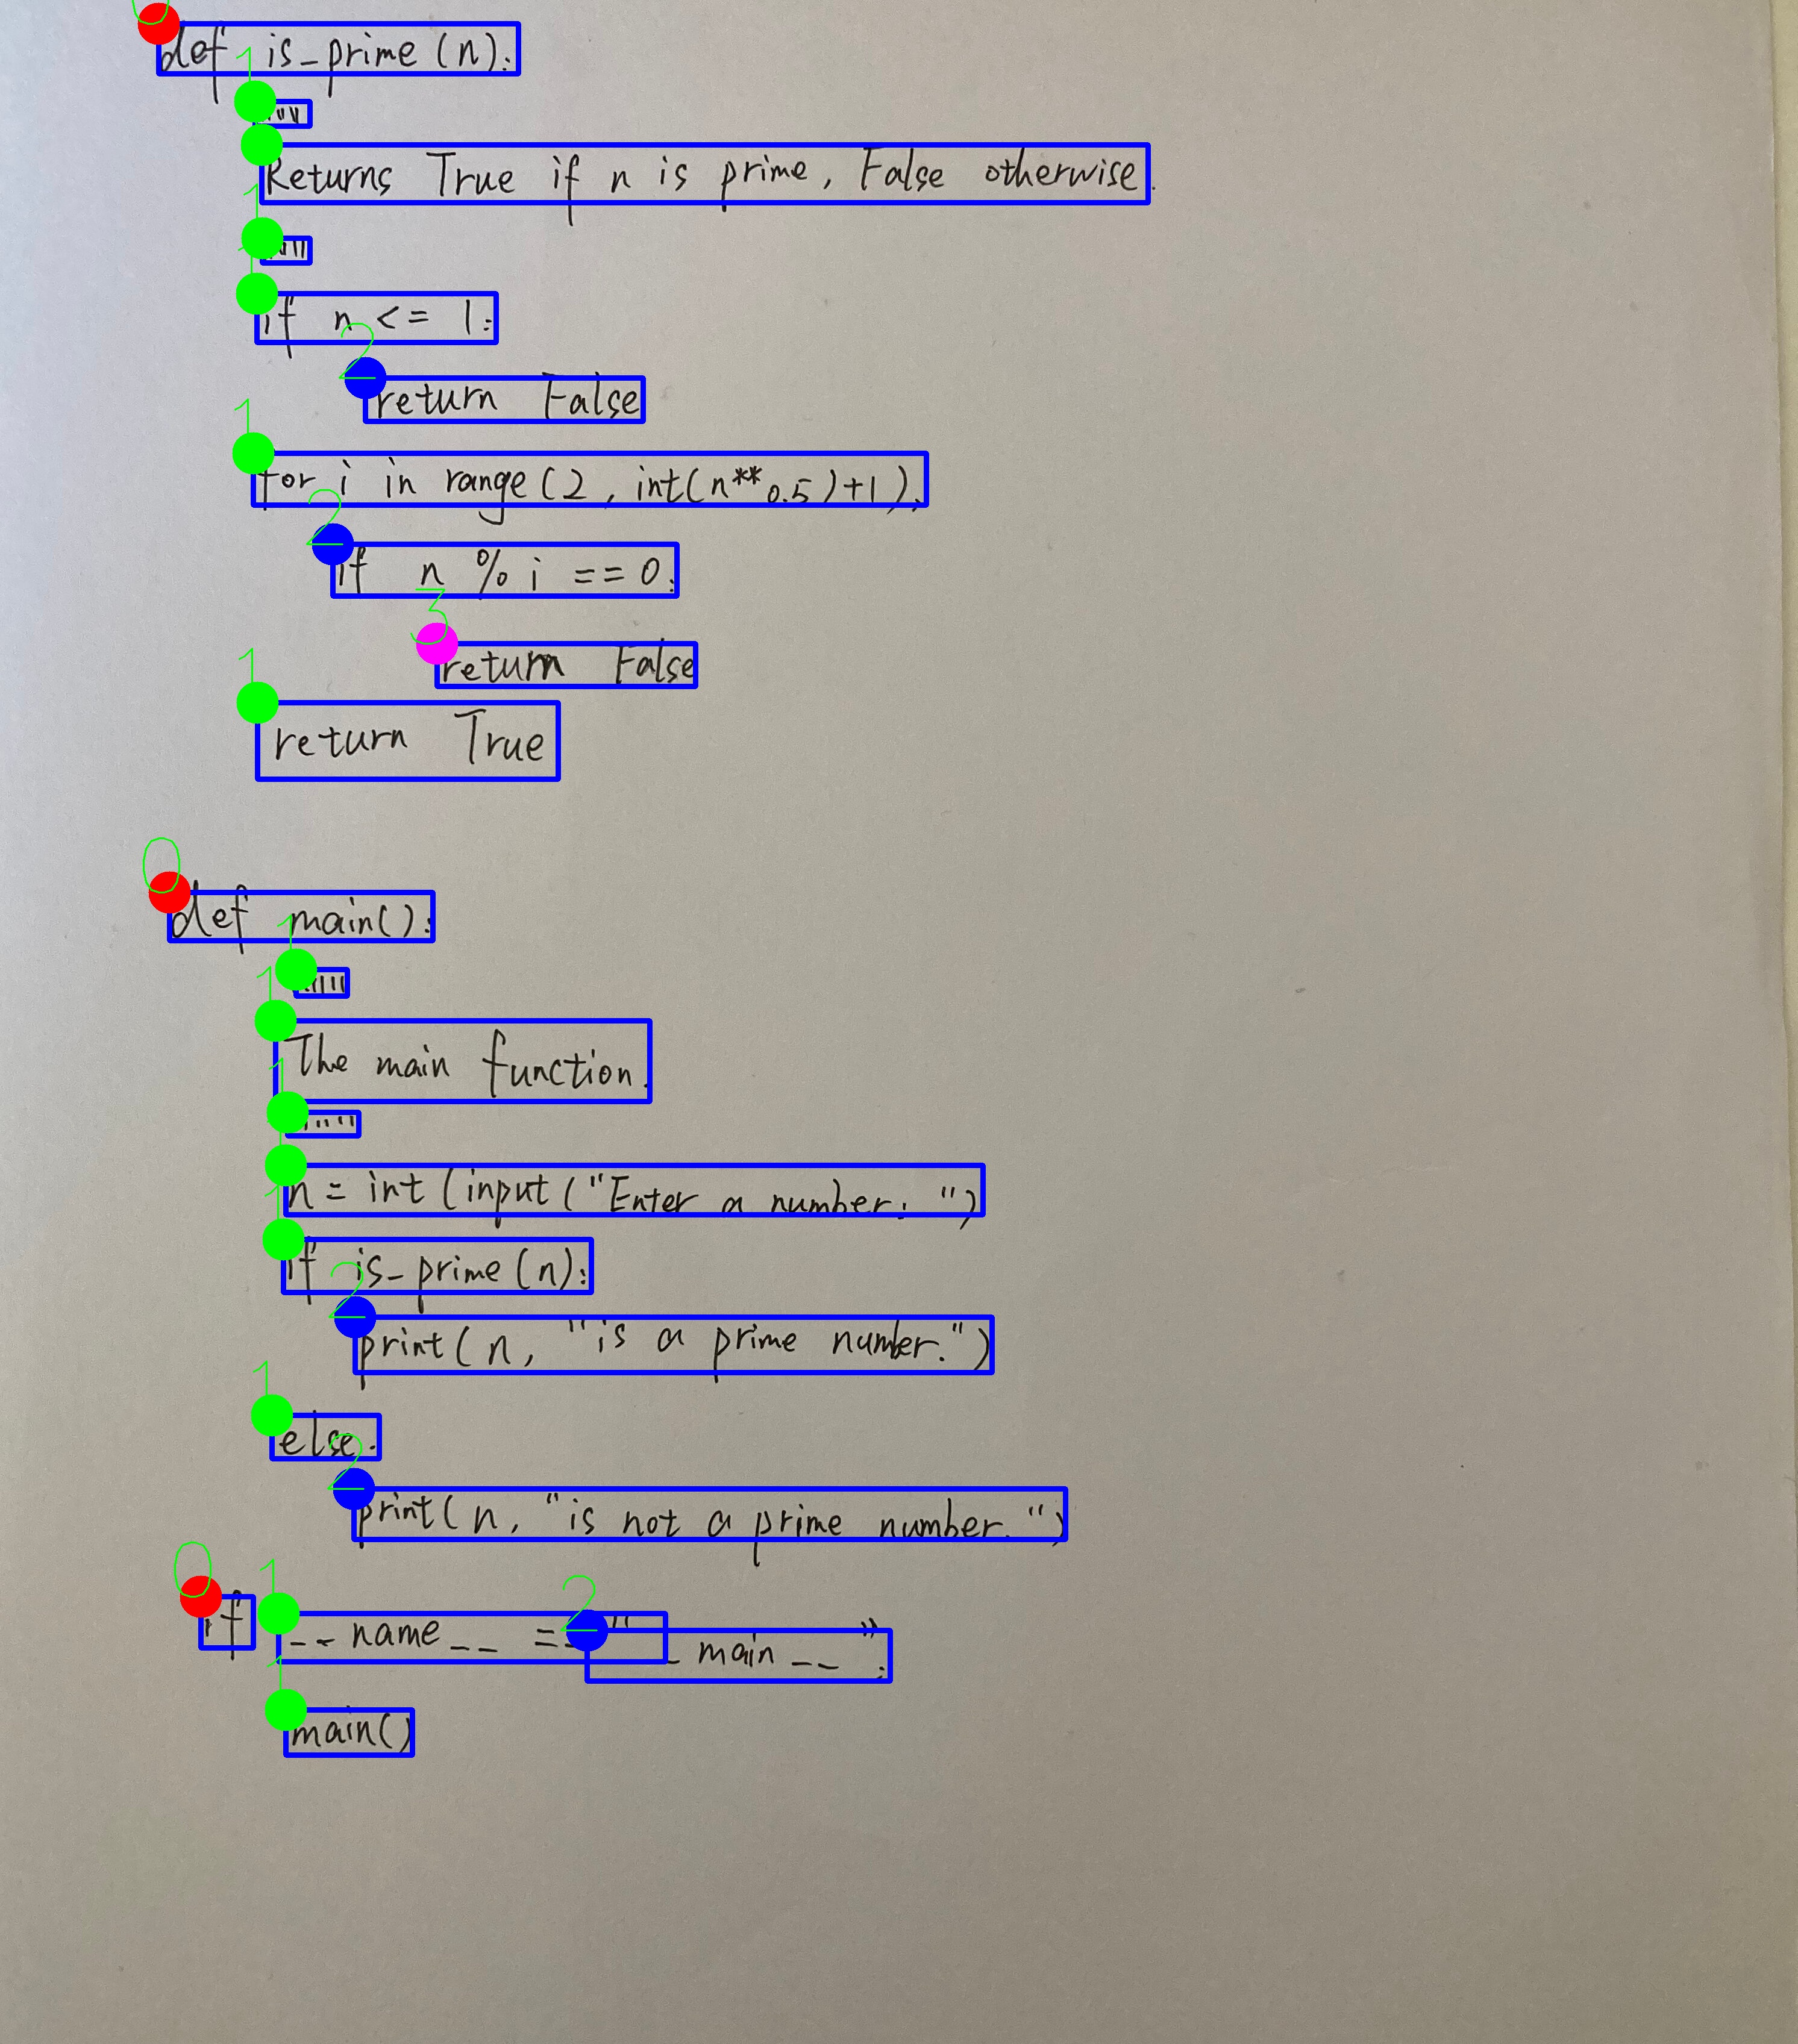 def is_prime(n):
    """
    Returns True if n is prime, False otherwise.
    """
    if n <= 1:
        return False
    for i in range(2, int(n**0.5)+1):
        if n % i == 0:
            return False
    return True
def main():
    """
    The main function.
    """
    n = int(input("Enter a number: ")
    if is_prime(n):
        print(n, "is a prime number.")
    else:
        print(n, "is not a prime number.")
if __name__ == "__main__":
    main()